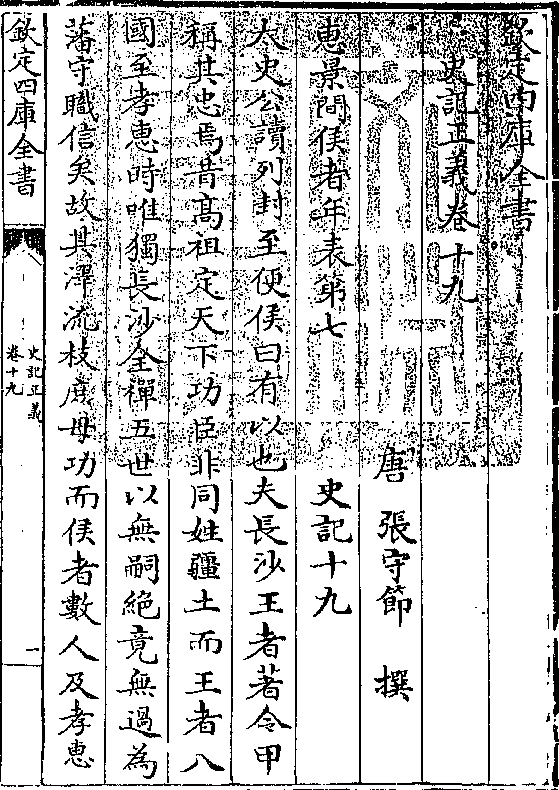 欽定四庫全書
史記正義卷十九
唐 張守節 撰
惠景間侯者年表第七 史記十九
太史公讀列封至便侯曰有以也夫長沙王者著令甲
稱其忠焉昔髙祖定天下功臣非同姓疆土而王者八
國至孝惠時唯獨長沙全禪五世以無嗣絶竟無過為
藩守職信矣故其澤流枝庶毋功而侯者數人及孝惠
欽定四庫全書
史記正義
卷十九
一